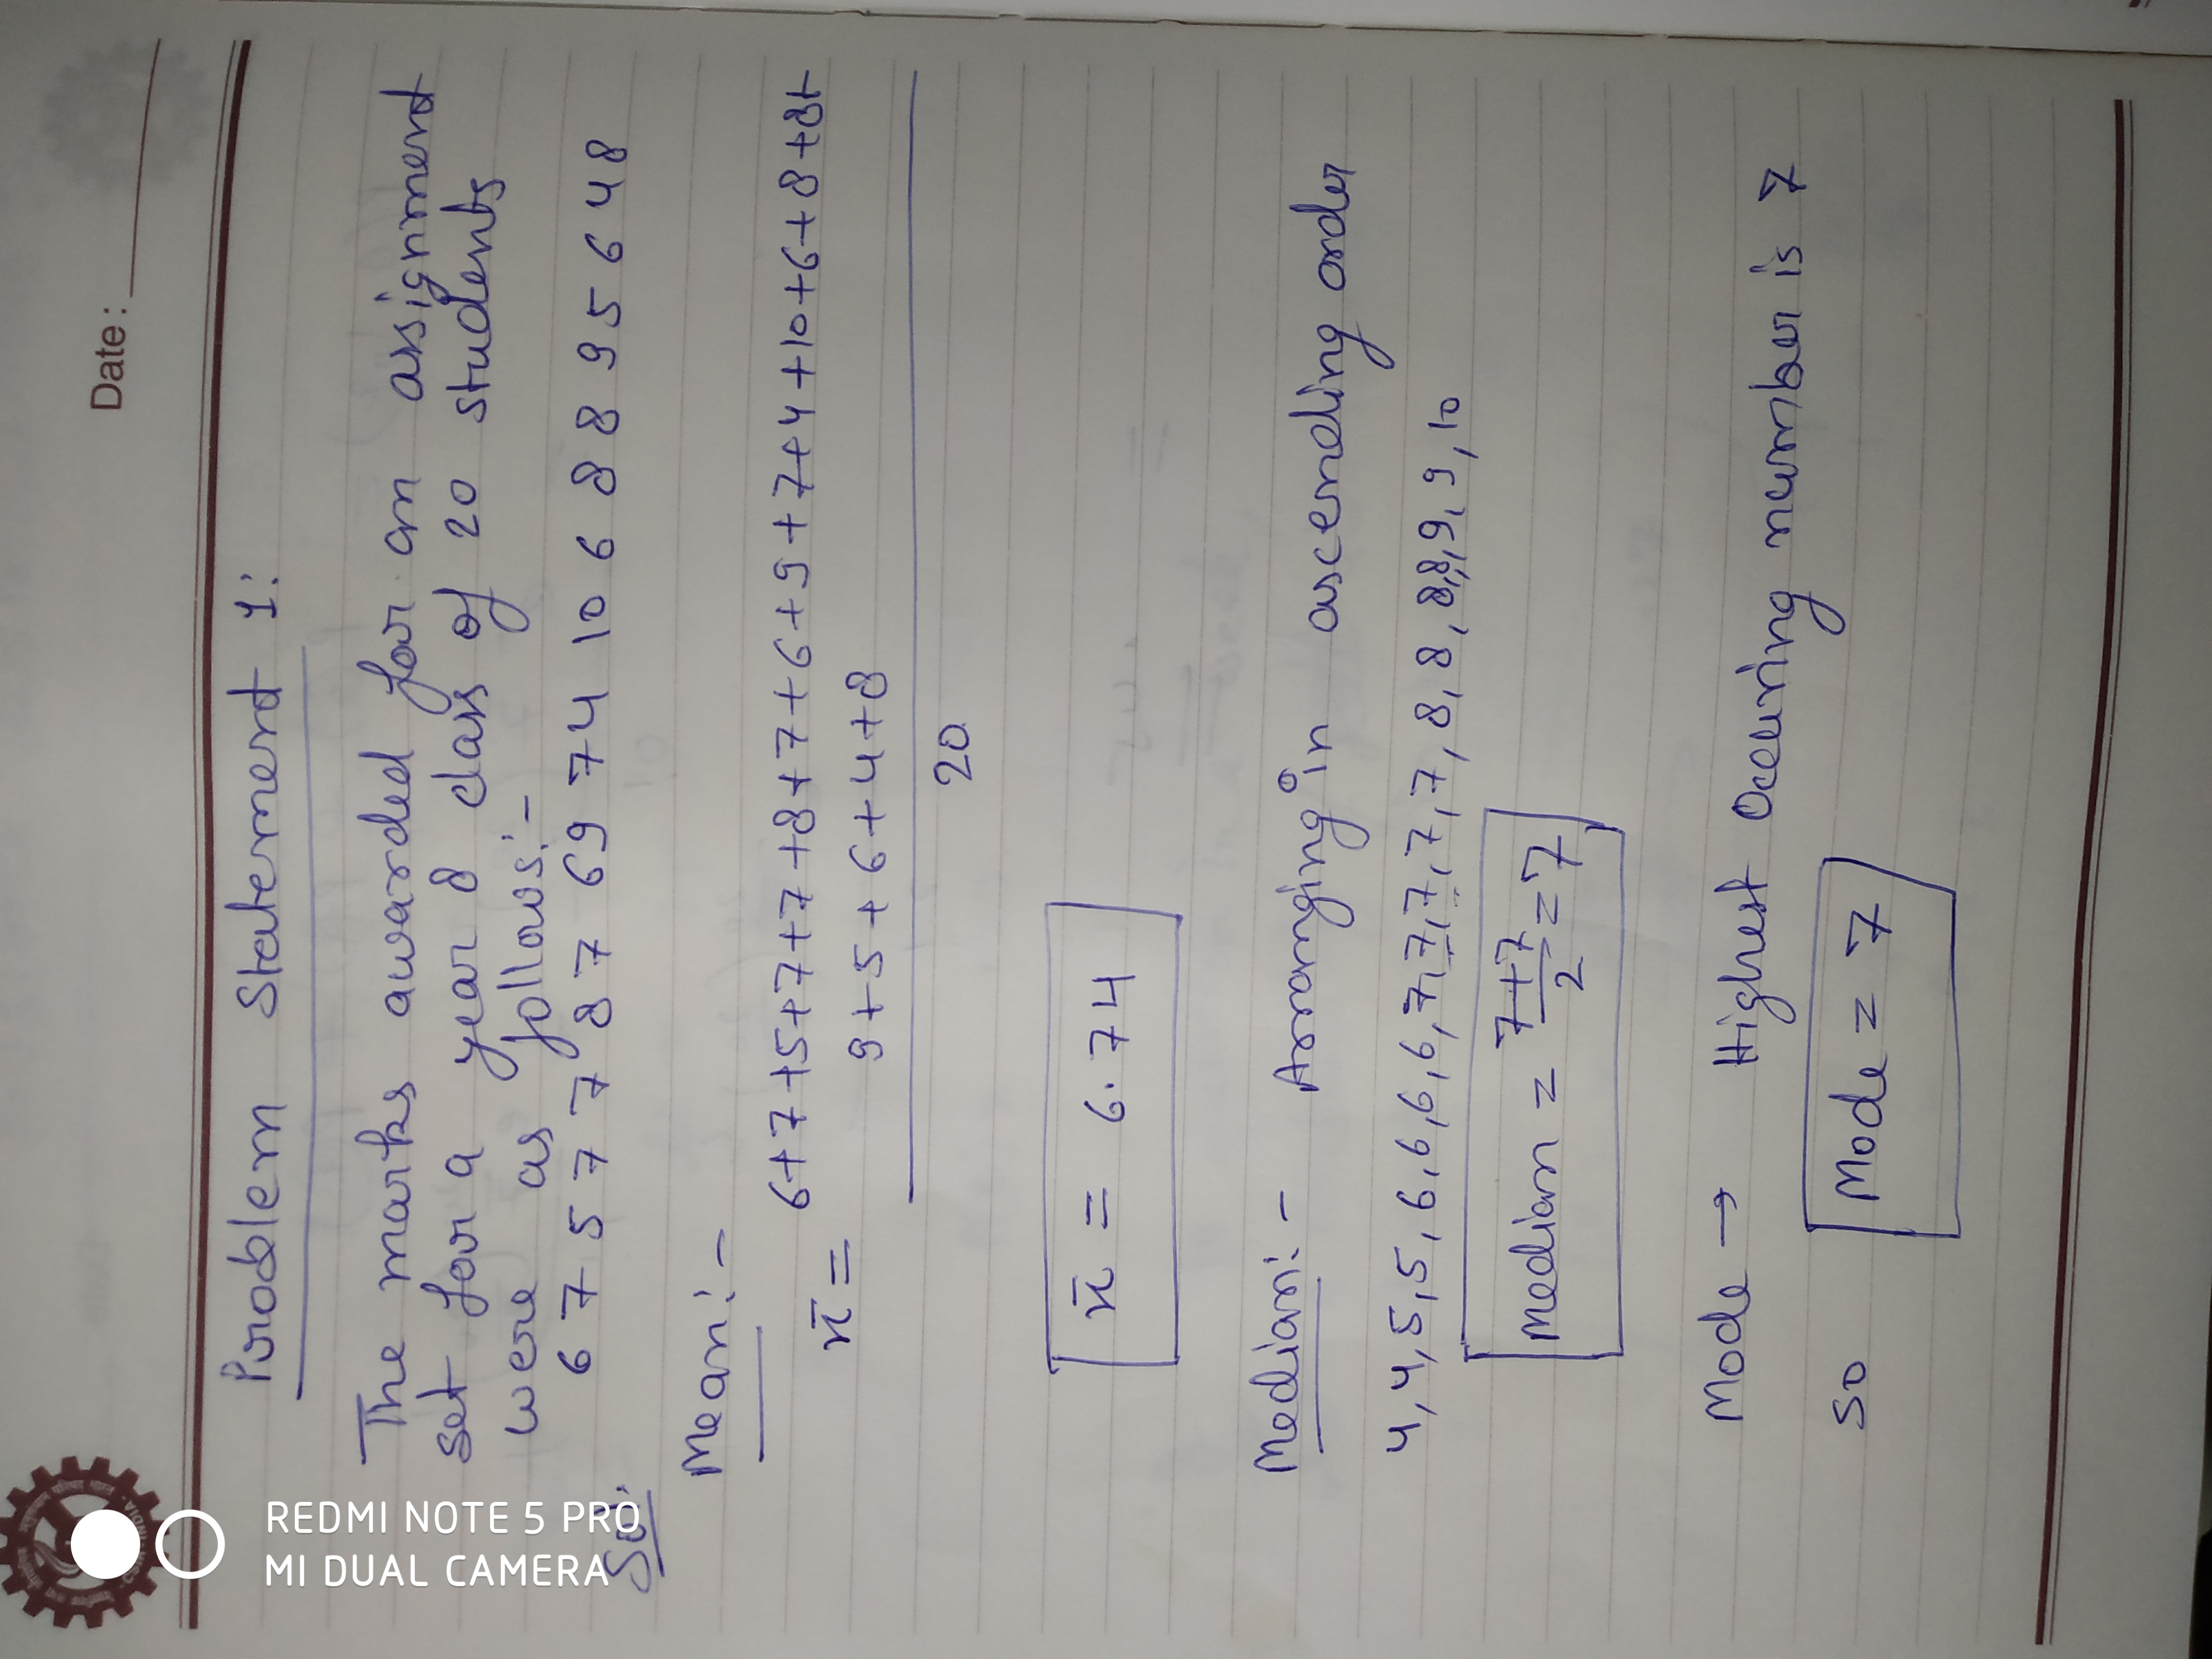 Date:
Problem Statement 1:
The marks awarded for an assignment
set for a year 8 class of 20 students
were as follows:-
6 7 5 7 7 8 7 6 9 7 4 10 6 8 8 9 5 6 4 8
Sol.
Mean:-
6+7+5+7+7+8+7+6+9+7+4+10+6+8+8+
x̄ =
9+5+6+4+8
20
x̄ = 6.74
Median:- Arranging in ascending order
4,4,5,5,6,6,6,6,6,7,7,7,7,7,7,8,8,8,8,9,9,10
Median = 7+7/2 = 7
Mode → Highest Occuring number is 7
so Mode = 7
REDMI NOTE 5 PRO
MI DUAL CAMERA